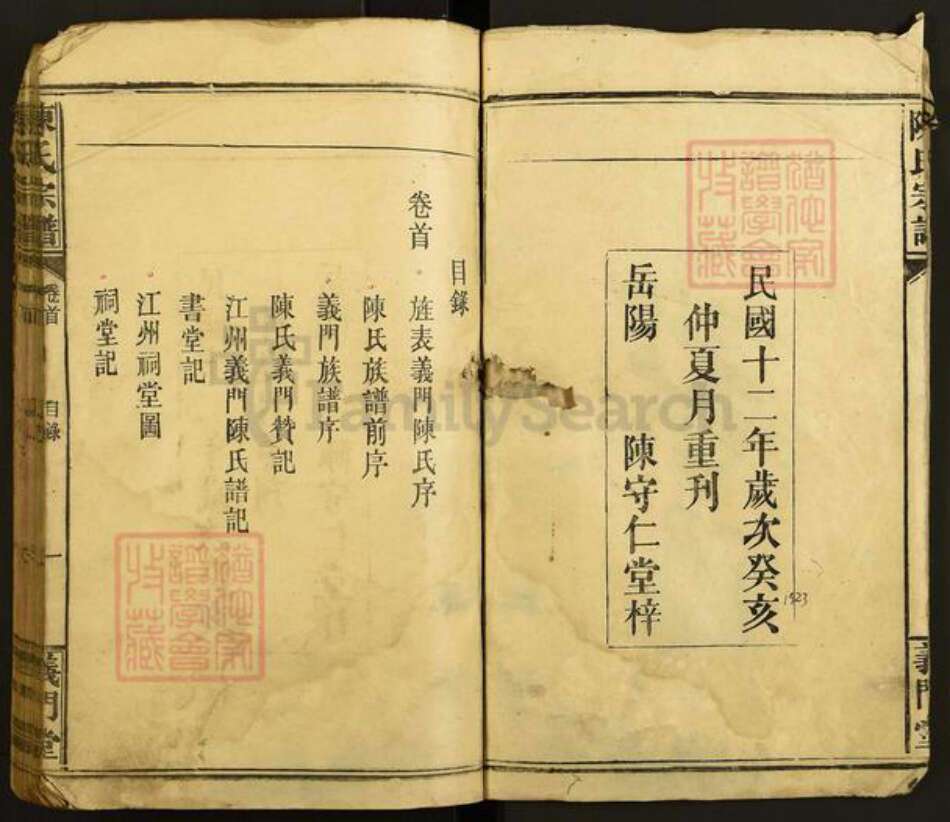 陳氏宗譜
義門堂
民國十二年歲次癸亥
1923
仲夏月重刊
岳陽 陳守仁堂梓
目錄
卷首 旌表義門陳氏序
陳氏族譜前序
義門族譜序
陳氏義門贊記
江州義門陳氏譜記
書堂記
江州祠堂圖
祠堂記
陳氏宗譜
卷首
目錄
一
義門堂
FamilySearch